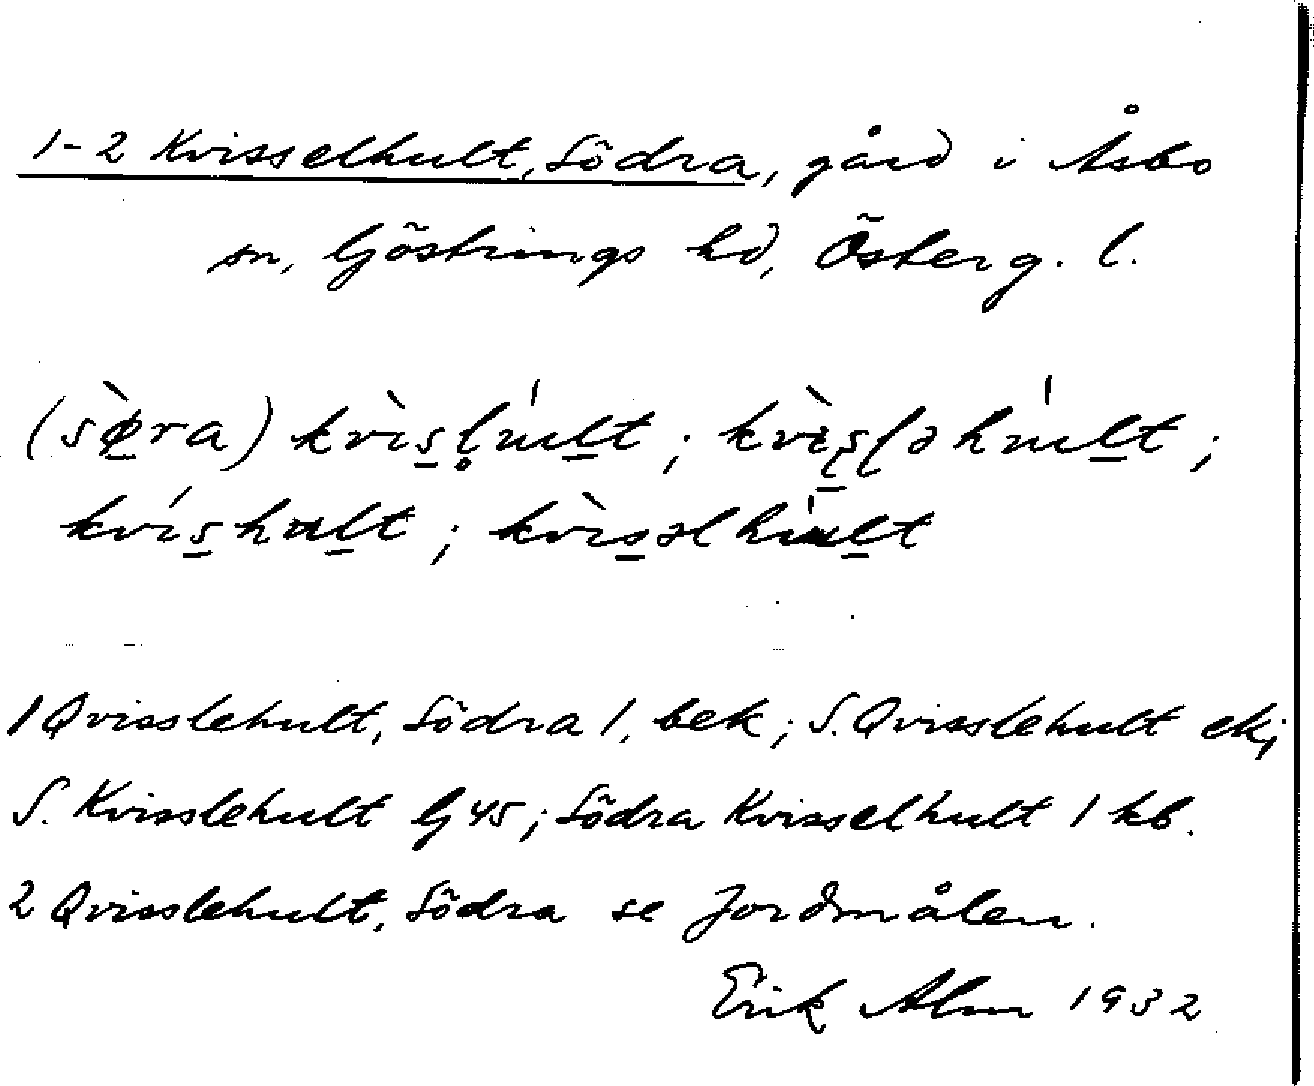 1-2 Kvisselhult, Södra, gård i Åsbo
sn, Göstrings hd, Österg. l.
(sø̀ra) kvìsl̥húlt ; kvìsləhúlt ;
kvíshult ; kvìsəlhúlt
1 Qvisslehult, Södra 1, bek ; S. Qvisslehult ek ;
S. Kvisslehult Gj 45 ; Södra Kvisselhult 1 kb.
2 Qvisslehult, Södra se Jordmålen.
Erik Alm 1932